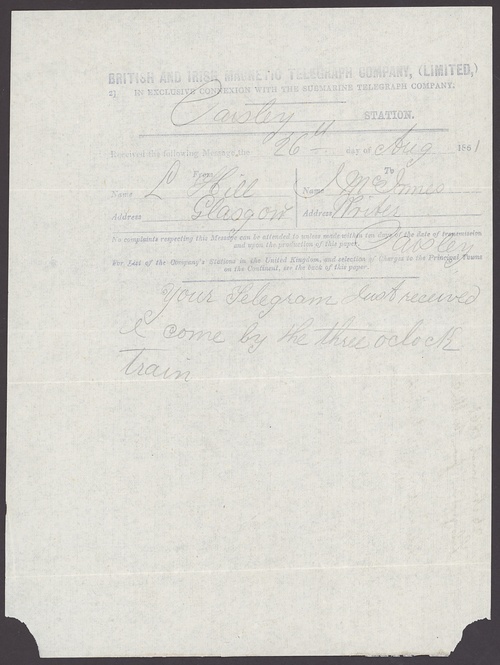 BRITISH AND IRISH MAGNETIC TELEGRAPH COMPANY, (LIMITED,)
2] IN EXCLUSIVE CONNEXION WITH THE SUBMARINE TELEGRAPH COMPANY.
Paisley STATION.
Received the following Message the 26th day of Aug 1861
From To
Name L Hill Name J McInnes
Address Glasgow Address Writer
Paisley
No complaints respecting this Message can be attended to unless made within ten days of the date of transmission
and upon the production of this paper.
For List of the Company's Stations in the United Kingdom, and selection of Charges to the Principal Towns
on the Continent, see the back of this paper
Your Telegram Just received
I come by the three oclock
train